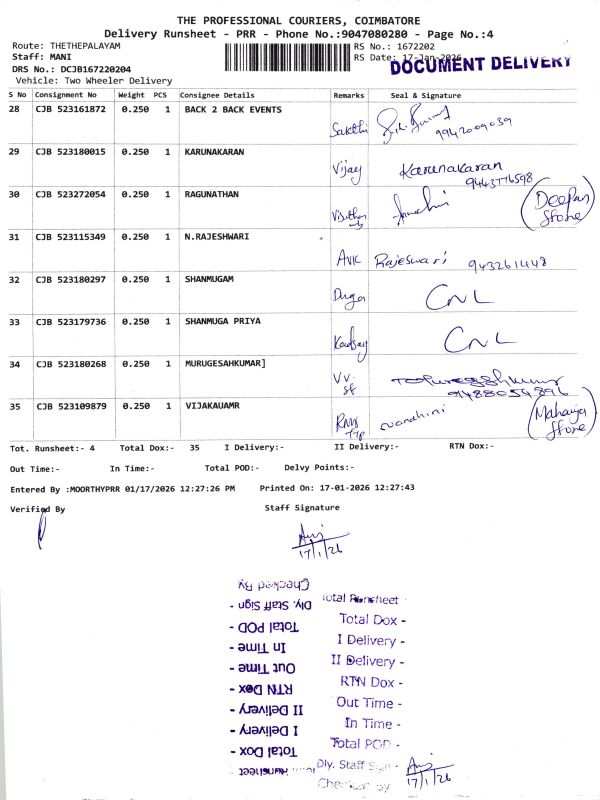 THE PROFESSIONAL COURIERS, COIMBATORE
Delivery Runsheet - PRR - Phone No.:9047080280 - Page No.:4
Route: THETHEPALAYAM RS No.: 1672202
Staff: MANI RS Date: 17-Jan-2026
DRS No.: DCJB167220204 DOCUMENT DELIVERY
Vehicle: Two Wheeler Delivery
S No Consignment No Weight PCS Consignee Details Remarks Seal & Signature
28 CJB 523161872 0.250 1 BACK 2 BACK EVENTS Sakthi 9942009039
29 CJB 523180015 0.250 1 KARUNAKARAN Vijay Karunakaran 9443776598
30 CJB 523272054 0.250 1 RAGUNATHAN Deepan Store
31 CJB 523115349 0.250 1 N.RAJESHWARI Rajeswari 943261448
32 CJB 523180297 0.250 1 SHANMUGAM Durga CNL
33 CJB 523179736 0.250 1 SHANMUGA PRIYA CNL
34 CJB 523180268 0.250 1 MURUGESAHKUMAR] 9488054896
35 CJB 523109879 0.250 1 VIJAKAUAMR Store
Tot. Runsheet:- 4 Total Dox:- 35 I Delivery:- II Delivery:- RTN Dox:-
Out Time:- In Time:- Total POD:- Delvy Points:-
Entered By :MOORTHYPRR 01/17/2026 12:27:26 PM Printed On: 17-01-2026 12:27:43
Verified By Staff Signature
17/1/26
Total Runsheet -
Total Dox -
I Delivery -
II Delivery -
RTN Dox -
Out Time -
In Time -
Total POD -
Dly. Staff Sign -
Checked By
17/1/26
Total Runsheet
Total Dox -
I Delivery -
II Delivery -
RTN Dox -
Out Time -
In Time -
Total POD -
Dly. Staff Sign -
Checked By